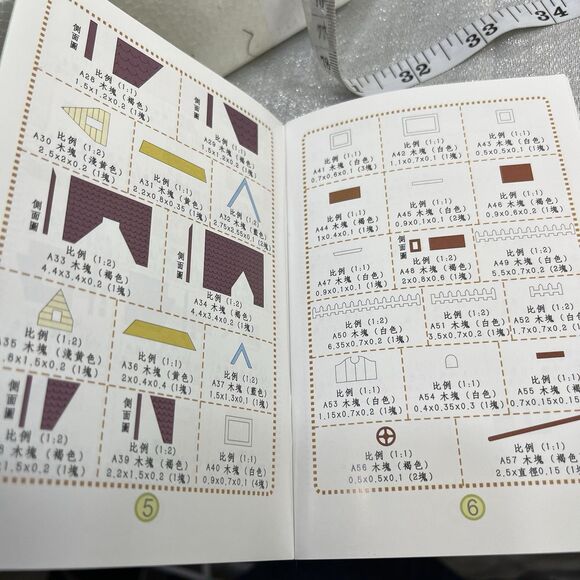 側面圖
比例 (1:1)
A28 木塊 (褐色)
1.5x1.2x0.2 (1塊)
側面圖
比例 (1:1)
A29 木塊 (褐色)
1.5x1.3x0.2 (1塊)
比例 (1:2)
A30 木塊 (淺黃色)
2.5x2x0.2 (1塊)
比例 (1:1)
A31 木塊 (黃色)
2.2x0.8x0.35 (1塊)
比例 (1:2)
A32 木塊 (藍色)
2.75x2.65x0.1 (2塊)
側面圖
比例 (1:2)
A33 木塊 (褐色)
4.4x3.4x0.2 (1塊)
側面圖
比例 (1:2)
A34 木塊 (褐色)
4.4x3.4x0.2 (1塊)
比例 (1:2)
A35 木塊 (淺黃色)
.8x1.5x0.2 (1塊)
比例 (1:1)
A36 木塊 (黃色)
2x0.4x0.4 (1塊)
比例 (1:2)
A37 木塊 (藍色)
1.5x1.3x0.1 (1塊)
側面圖
比例 (1:2)
8 木塊 (褐色)
1.5x0.2 (1塊)
側面圖
比例 (1:2)
A39 木塊 (褐色)
2.2x1.5x0.2 (1塊)
比例 (1:1)
A40 木塊 (白色)
0.9x0.7x0.1 (4塊)
5
比例 (1:1)
A41 木塊 (白色)
0.7x0.6x0.1 (3塊)
比例 (1:1)
A42 木塊 (白色)
1.1x0.7x0.1 (2塊)
比例 (1:1)
A43 木塊 (白色)
0.5x0.5x0.1 (1塊)
比例 (1:1)
A44 木塊 (褐色)
1x0.4x0.1 (1塊)
比例 (1:1)
A45 木塊 (白色)
0.9x0.1x0.1 (1塊)
比例 (1:1)
A46 木塊 (褐色)
0.9x0.6x0.2 (1塊)
比例 (1:1)
A47 木塊 (白色)
0.9x0.1x0.2 (1塊)
側面圖
比例 (1:2)
A48 木塊 (褐色)
2x0.8x0.6 (1塊)
比例 (1:2)
A49 木塊 (白色)
5.5x0.7x0.2 (2塊)
比例 (1:2)
A50 木塊 (白色)
6.35x0.7x0.2 (1塊)
比例 (1:2)
A51 木塊 (白色)
3.5x0.7x0.2 (1塊)
比例 (1:2)
A52 木塊 (白色)
1.7x0.7x0.2 (2塊)
比例 (1:1)
A53 木塊 (白色)
1.15x0.7x0.2 (1塊)
比例 (1:1)
A54 木塊 (白色)
0.4x0.35x0.3 (1塊)
比例 (1:1)
A55 木塊 (褐色)
0.7x0.15x0.15
比例 (1:1)
A56 木塊 (褐色)
0.5x0.5x0.1 (2塊)
比例 (1:1)
A57 木塊 (褐色)
2.5x直徑0.15 (1塊)
6
32
33
34